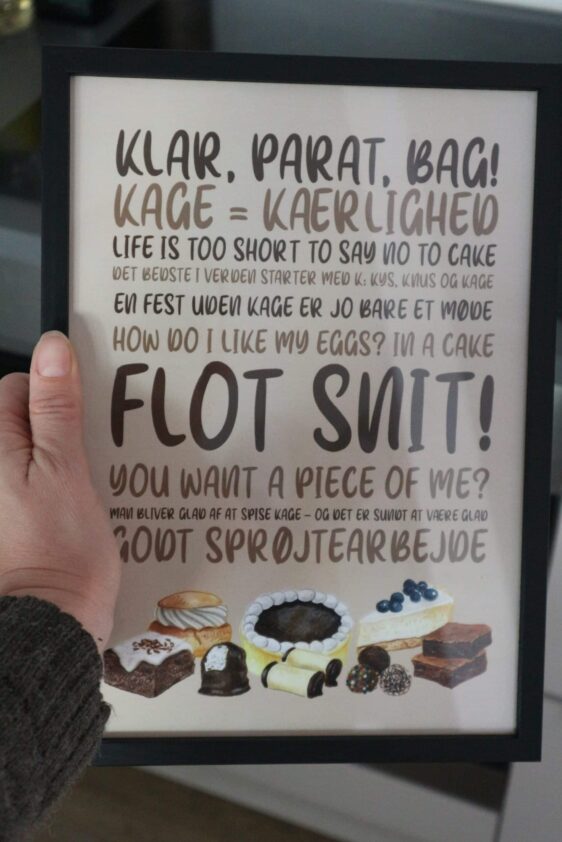 KLAR, PARAT, BAG!
KAGE = KAERLIGHED
LIFE IS TOO SHORT TO SAY NO TO CAKE
DET BEDSTE I VERDEN STARTER MED K: KYS, KNUS OG KAGE
EN FEST UDEN KAGE ER JO BARE ET MØDE
HOW DO I LIKE MY EGGS? IN A CAKE
FLOT SNIT!
YOU WANT A PIECE OF ME?
MAN BLIVER GLAD AF AT SPISE KAGE – OG DET ER SUNDT AT VAERE GLAD
GODT SPRØJTEARBEJDE